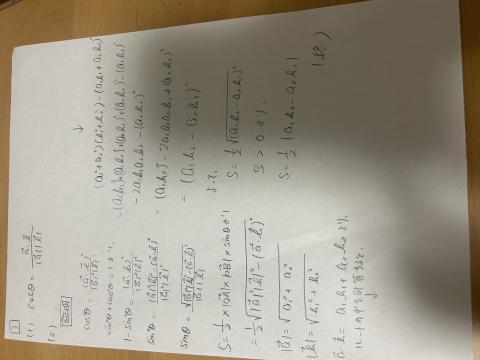 3
(1) cosθ = \frac{\vec{a}・\vec{b}}{|\vec{a}||\vec{b}|}
(2)
cos²θ = \frac{(\vec{a}・\vec{b})²}{|\vec{a}|²|\vec{b}|²}
sin²θ + cos²θ = 1 より
1 - sin²θ = \frac{(\vec{a}・\vec{b})²}{|\vec{a}|²|\vec{b}|²}
sin²θ = \frac{|\vec{a}|²|\vec{b}|² - (\vec{a}・\vec{b})²}{|\vec{a}|²|\vec{b}|²}
sinθ = \frac{\sqrt{|\vec{a}|²|\vec{b}|² - (\vec{a}・\vec{b})²}}{|\vec{a}||\vec{b}|}
S = \frac{1}{2} × |OA| × |OB| × sinθ より
= \frac{1}{2}\sqrt{|\vec{a}|²|\vec{b}|² - (\vec{a}・\vec{b})²}
|\vec{a}| = \sqrt{a₁² + a₂²}
|\vec{b}| = \sqrt{b₁² + b₂²}
\vec{a}・\vec{b} = a₁b₁ + a₂b₂ より
ルートの中を計算すると
↓
(a₁² + a₂²)(b₁² + b₂²) - (a₁b₁ + a₂b₂)²
= (a₁b₁)² + (a₁b₂)² + (a₂b₁)² + (a₂b₂)² - (a₁b₁)²
- 2a₁b₁a₂b₂ - (a₂b₂)²
= (a₁b₂)² - 2a₁b₁a₂b₂ + (a₂b₁)²
= (a₁b₂ - a₂b₁)²
よって
S = \frac{1}{2}\sqrt{(a₁b₂ - a₂b₁)²}
S > 0 より
S = \frac{1}{2}|a₁b₂ - a₂b₁|